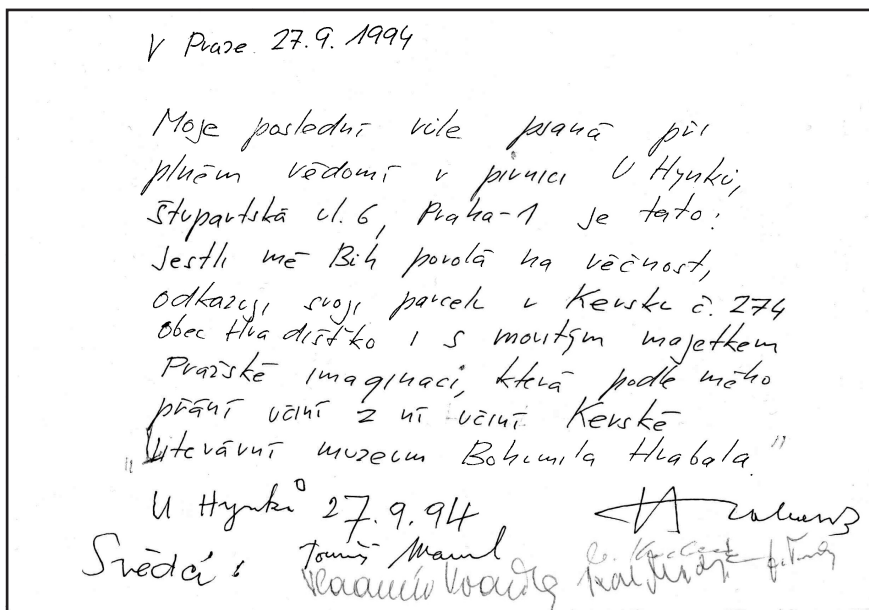 V Praze 27.9.1994
Moje poslední vůle psaná při
plném vědomí v pivnici U Hynků,
Štupartská ul. 6, Praha-1 je tato:
Jestli mě Bůh povolá na věčnost,
odkazuji svoji parcelu v Kersku č. 274
obec Hradištko i s movitým majetkem
Pražské imaginaci, která podle mého
přání učiní z ní učiní Kerské
"Literární muzeum Bohumila Hrabala"
U Hynků 27.9.94
Svědci: Tomáš